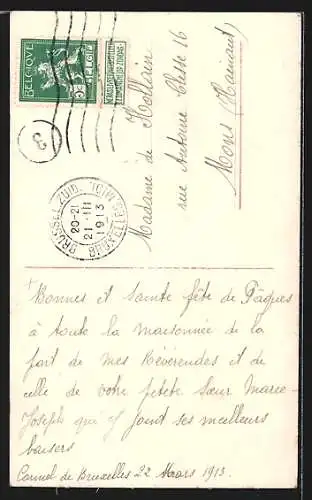 BELGIQUE
BELGIË
5 c
3
BRUSSEL ZUID
20-21
21 III
1913
BRUXELLES MIDI
Madame de Hollain
rue Antoine Clesse 16
Mons (Hainaut)
+
Bonnes et Sainte fête de Pâques
à toute la maisonnée de la
part de mes Révérendes et de
celle de votre petite Sœur Marie-
Joseph qui y joint ses meilleurs
baisers
Carmel de Bruxelles 22 Maars 1913.